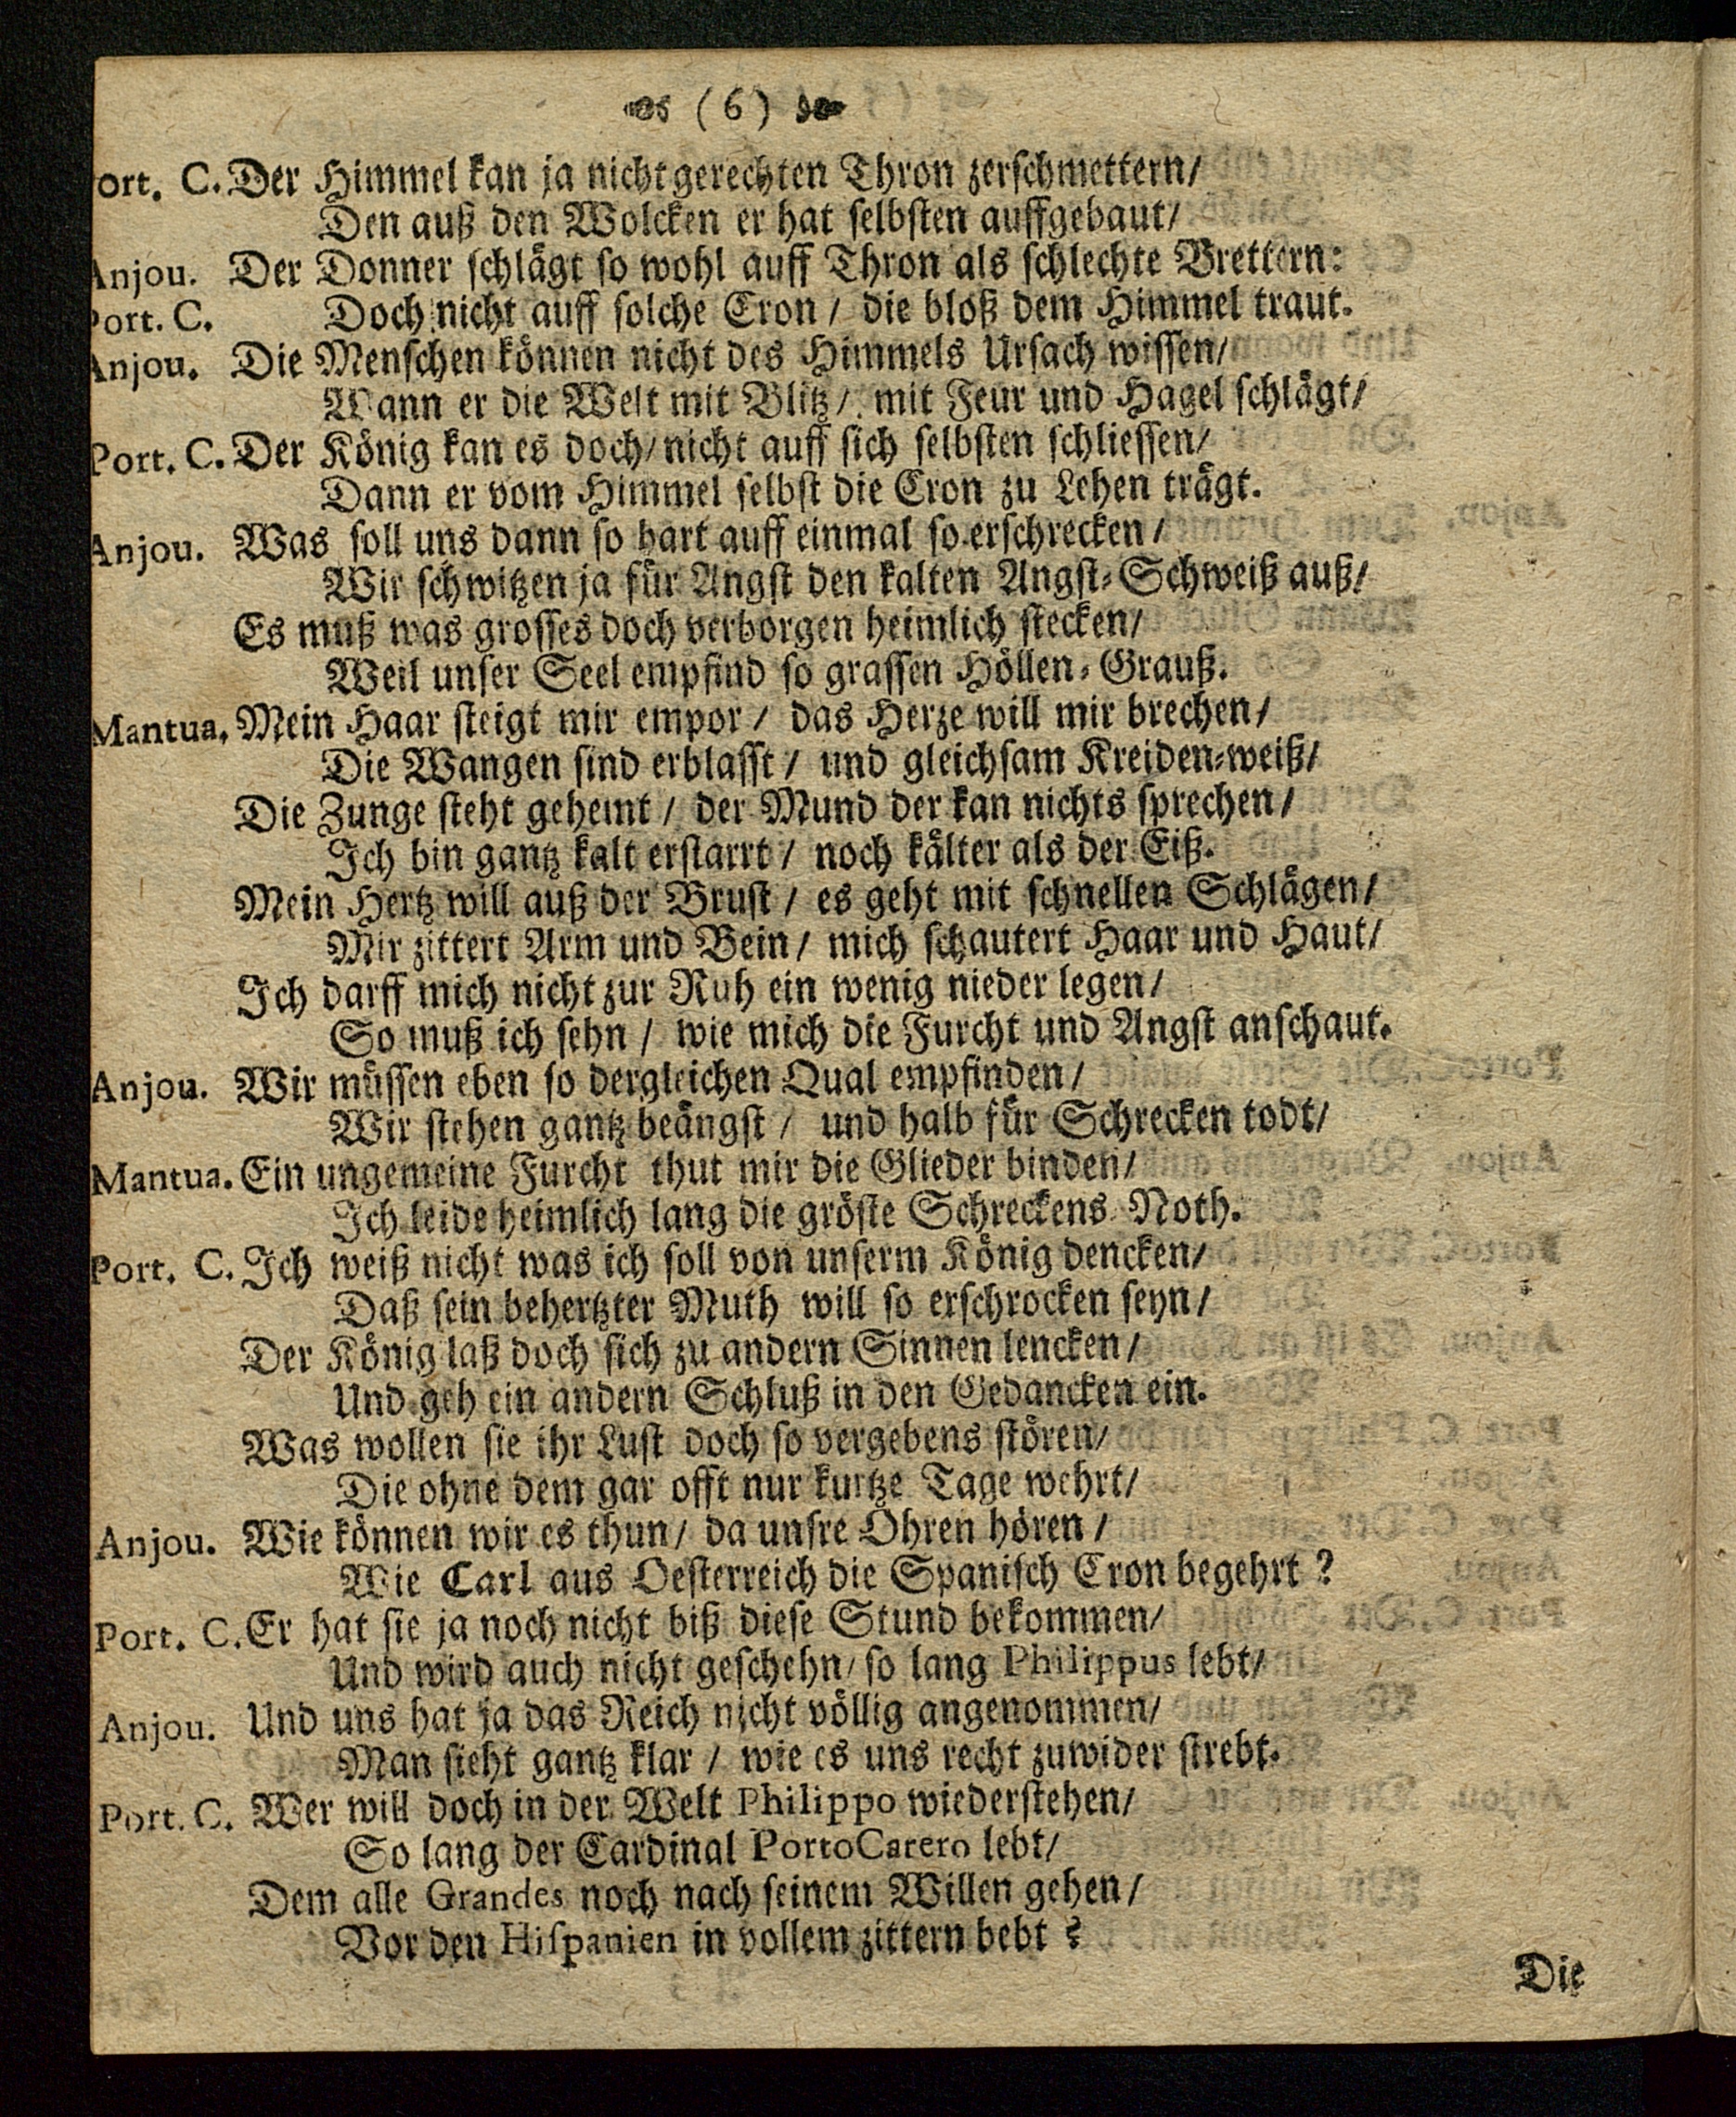 (6)
ort. C. Der Himmel kan ja nicht gerechten Thron zerschmettern/
Den auß den Wolcken er hat selbsten auffgebaut/
Anjou. Der Donner schlägt so wohl auff Thron als schlechte Brettern:
Port. C. Doch nicht auff solche Cron / die bloß dem Himmel traut.
Anjou. Die Menschen können nicht des Himmels Ursach wissen/
Wann er die Welt mit Blitz / mit Feur und Hagel schlägt/
Port. C. Der König kan es doch/ nicht auff sich selbsten schliessen/
Dann er vom Himmel selbst die Cron zu Lehen trägt.
Anjou. Was soll uns dann so hart auff einmal so erschrecken /
Wir schwitzen ja für Angst den kalten Angst-Schweiß auß/
Es muß was grosses doch verborgen heimlich stecken/
Weil unser Seel empfind so grassen Höllen-Grauß.
Mantua. Mein Haar steigt mir empor / das Herze will mir brechen/
Die Wangen sind erblasst / und gleichsam Kreiden-weiß/
Die Zunge steht gehemt / der Mund der kan nichts sprechen/
Ich bin gantz kalt erstarrt / noch kälter als der Eiß.
Mein Hertz will auß der Brust / es geht mit schnellen Schlägen/
Mir zittert Arm und Bein / mich schautert Haar und Haut/
Ich darff mich nicht zur Ruh ein wenig nieder legen/
So muß ich sehn / wie mich die Furcht und Angst anschaut.
Anjou. Wir müssen eben so dergleichen Qual empfinden/
Wir stehen gantz beängst / und halb für Schrecken todt/
Mantua. Ein ungemeine Furcht thut mir die Glieder binden/
Ich leide heimlich lang die gröste Schreckens Noth.
Port. C. Ich weiß nicht was ich soll von unserm König dencken/
Daß sein behertzter Muth will so erschrocken seyn/
Der König laß doch sich zu andern Sinnen lencken/
Und geh ein andern Schluß in den Gedancken ein.
Was wollen sie ihr Lust doch so vergebens stören/
Die ohne dem gar offt nur kurtze Tage wehrt/
Anjou. Wie können wir es thun/ da unsre Ohren hören /
Wie Carl aus Oesterreich die Spanisch Cron begehrt ?
Port. C. Er hat sie ja noch nicht biß diese Stund bekommen/
Und wird auch nicht geschehn/ so lang Philippus lebt/
Anjou. Und uns hat ja das Reich nicht völlig angenommen/
Man sieht gantz klar / wie es uns recht zuwider strebt.
Port. C. Wer will doch in der Welt Philippo wiederstehen/
So lang der Cardinal PortoCarero lebt/
Dem alle Grandes noch nach seinem Willen gehen/
Vor den Hispanien in vollem zittern bebt ?
Die